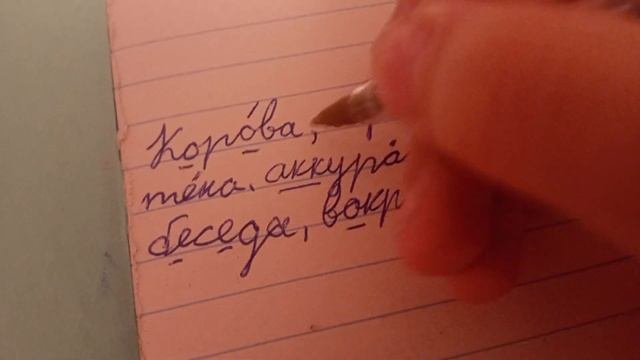 Коро́ва,
те́на. аккура
беседа, вокр